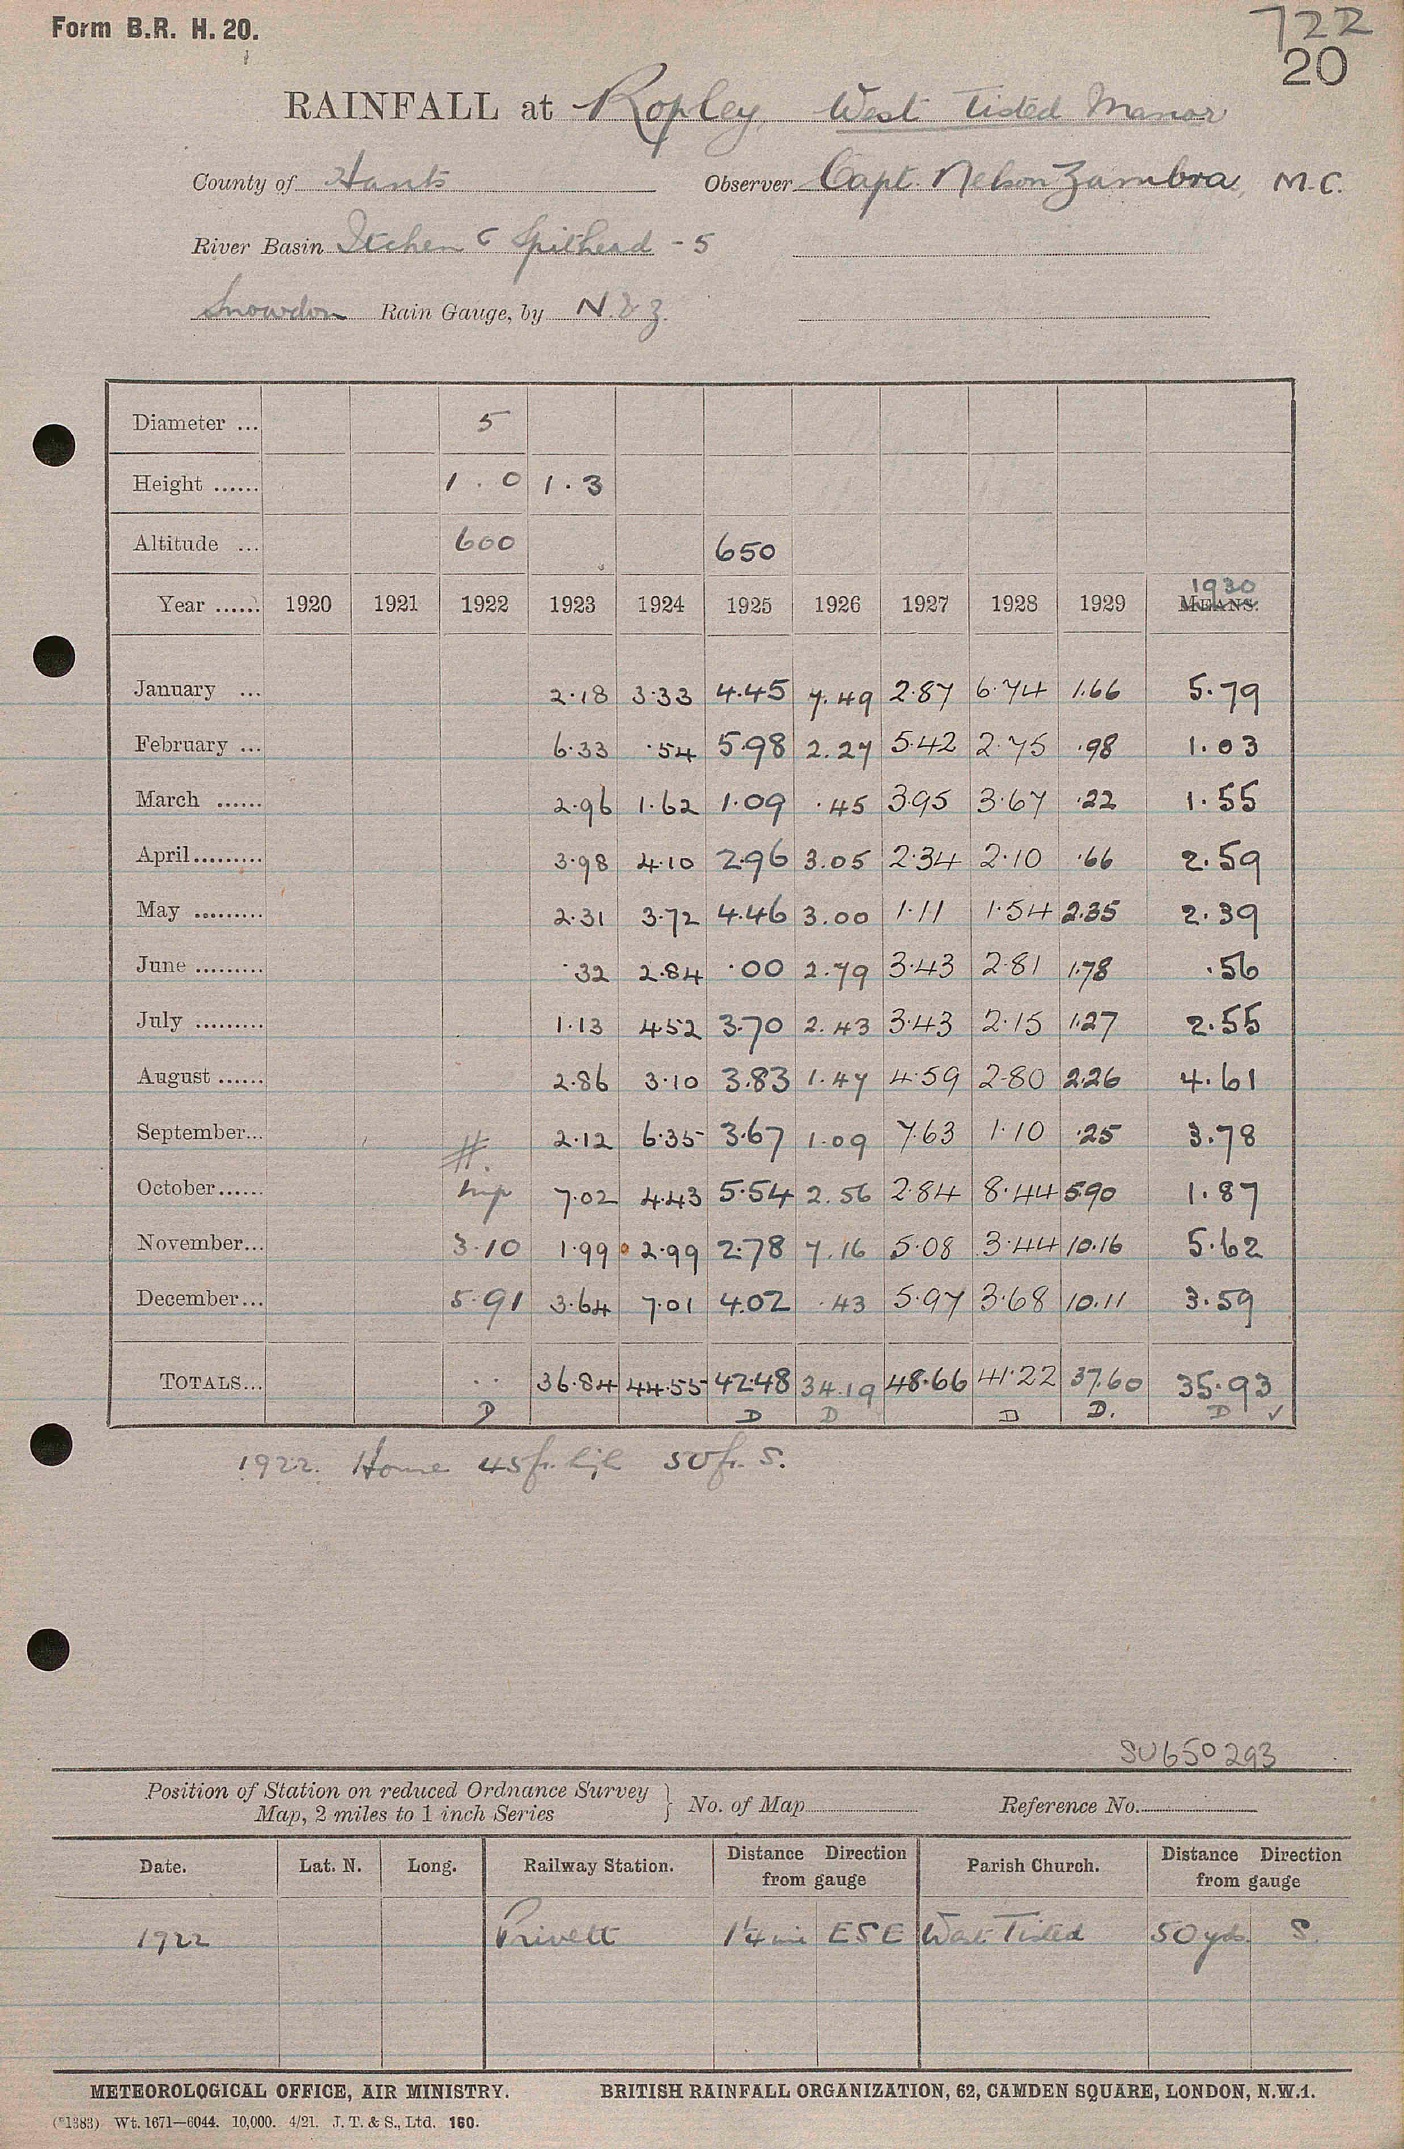 Form B.R. H. 20.
722
20
RAINFALL at Ropley, West Tisted Manor
County of Hants Observer Capt. Nelson Zambra, M.C.
River Basin Itchen & Spithead - 5
Snowdon Rain Gauge, by N. & Z.
Diameter ... 5
Height ...... 1 . 0 1 . 3
Altitude ... 600 650
Year ...... 1920 1921 1922 1923 1924 1925 1926 1927 1928 1929 MEANS. 1930
January ... 2.18 3.33 4.45 7.49 2.87 6.74 1.66 5.79
February ... 6.33 .54 5.98 2.27 5.42 2.75 .98 1.03
March ...... 2.96 1.62 1.09 .45 3.95 3.67 .22 1.55
April......... 3.98 4.10 2.96 3.05 2.34 2.10 .66 2.59
May ......... 2.31 3.72 4.46 3.00 1.11 1.54 2.35 2.39
June ......... .32 2.84 .00 2.79 3.43 2.81 1.78 .56
July ......... 1.13 4.52 3.70 2.43 3.43 2.15 1.27 2.55
August ...... 2.86 3.10 3.83 1.47 4.59 2.80 2.26 4.61
September... # 2.12 6.35 3.67 1.09 7.63 1.10 .25 3.78
October...... 7.02 4.43 5.54 2.56 2.84 8.44 5.90 1.87
November... 3.10 1.99 2.99 2.78 7.16 5.08 3.44 10.16 5.62
December... 5.91 3.64 7.01 4.02 .43 5.97 3.68 10.11 3.59
TOTALS... .. 36.84 44.55 42.48 34.19 48.66 41.22 37.60 35.93
D D D D D. D ✓
1922. House 45 ft. high 50 ft. S.
SU650293
Position of Station on reduced Ordnance Survey
Map, 2 miles to 1 inch Series } No. of Map Reference No.
Date. Lat. N. Long. Railway Station. Distance Direction from gauge Parish Church. Distance Direction from gauge
1922 Privett 1¼ mi ESE West Tisted 50 yds. S.
METEOROLOGICAL OFFICE, AIR MINISTRY. BRITISH RAINFALL ORGANIZATION, 62, CAMDEN SQUARE, LONDON, N.W.1.
(*1383) Wt. 1671—6044. 10,000. 4/21. J. T. & S., Ltd. 160.